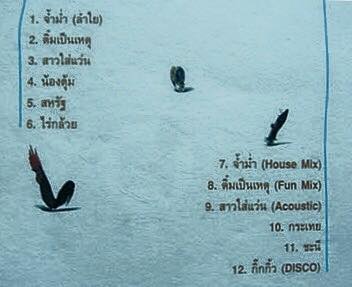 1. จ้ำม่ำ (ลำไย)
2. ดื่มเป็นเหตุ
3. สาวใส่แว่น
4. น้องตุ้ม
5. สหรัฐ
6. ไร่กล้วย
7. จ้ำม่ำ (House Mix)
8. ดื่มเป็นเหตุ (Fun Mix)
9. สาวใส่แว่น (Acoustic)
10. กระเทย
11. ชะนี
12. กิ๊กกิ้ว (DISCO)